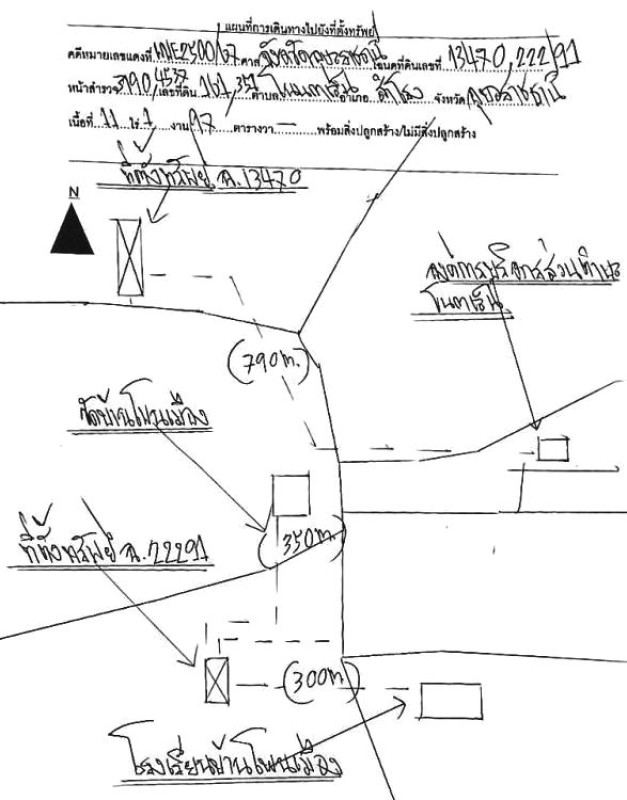 แผนที่การเดินทางไปยังที่ตั้งทรัพย์
คดีหมายเลขแดงที่ ศาล จังหวัด โฉนดที่ดินเลขที่ 13470, 22291
หน้าสำรวจ 3190, 4537 เลขที่ดิน 161, 351 ตำบล โนนกาเร็น อำเภอ สำโรง จังหวัด
เนื้อที่ 11 ไร่ 1 งาน 97 ตารางวา - พร้อมสิ่งปลูกสร้าง/ไม่มีสิ่งปลูกสร้าง
ที่ตั้งทรัพย์ ฉ.13470
N
องค์การบริหารส่วนตำบล
โนนกาเร็น
(790 ม.)
วัดบ้านโพนเมือง
(350 ม.)
ที่ตั้งทรัพย์ ฉ.22291
(300 ม.)
โรงเรียนบ้านโพนเมือง